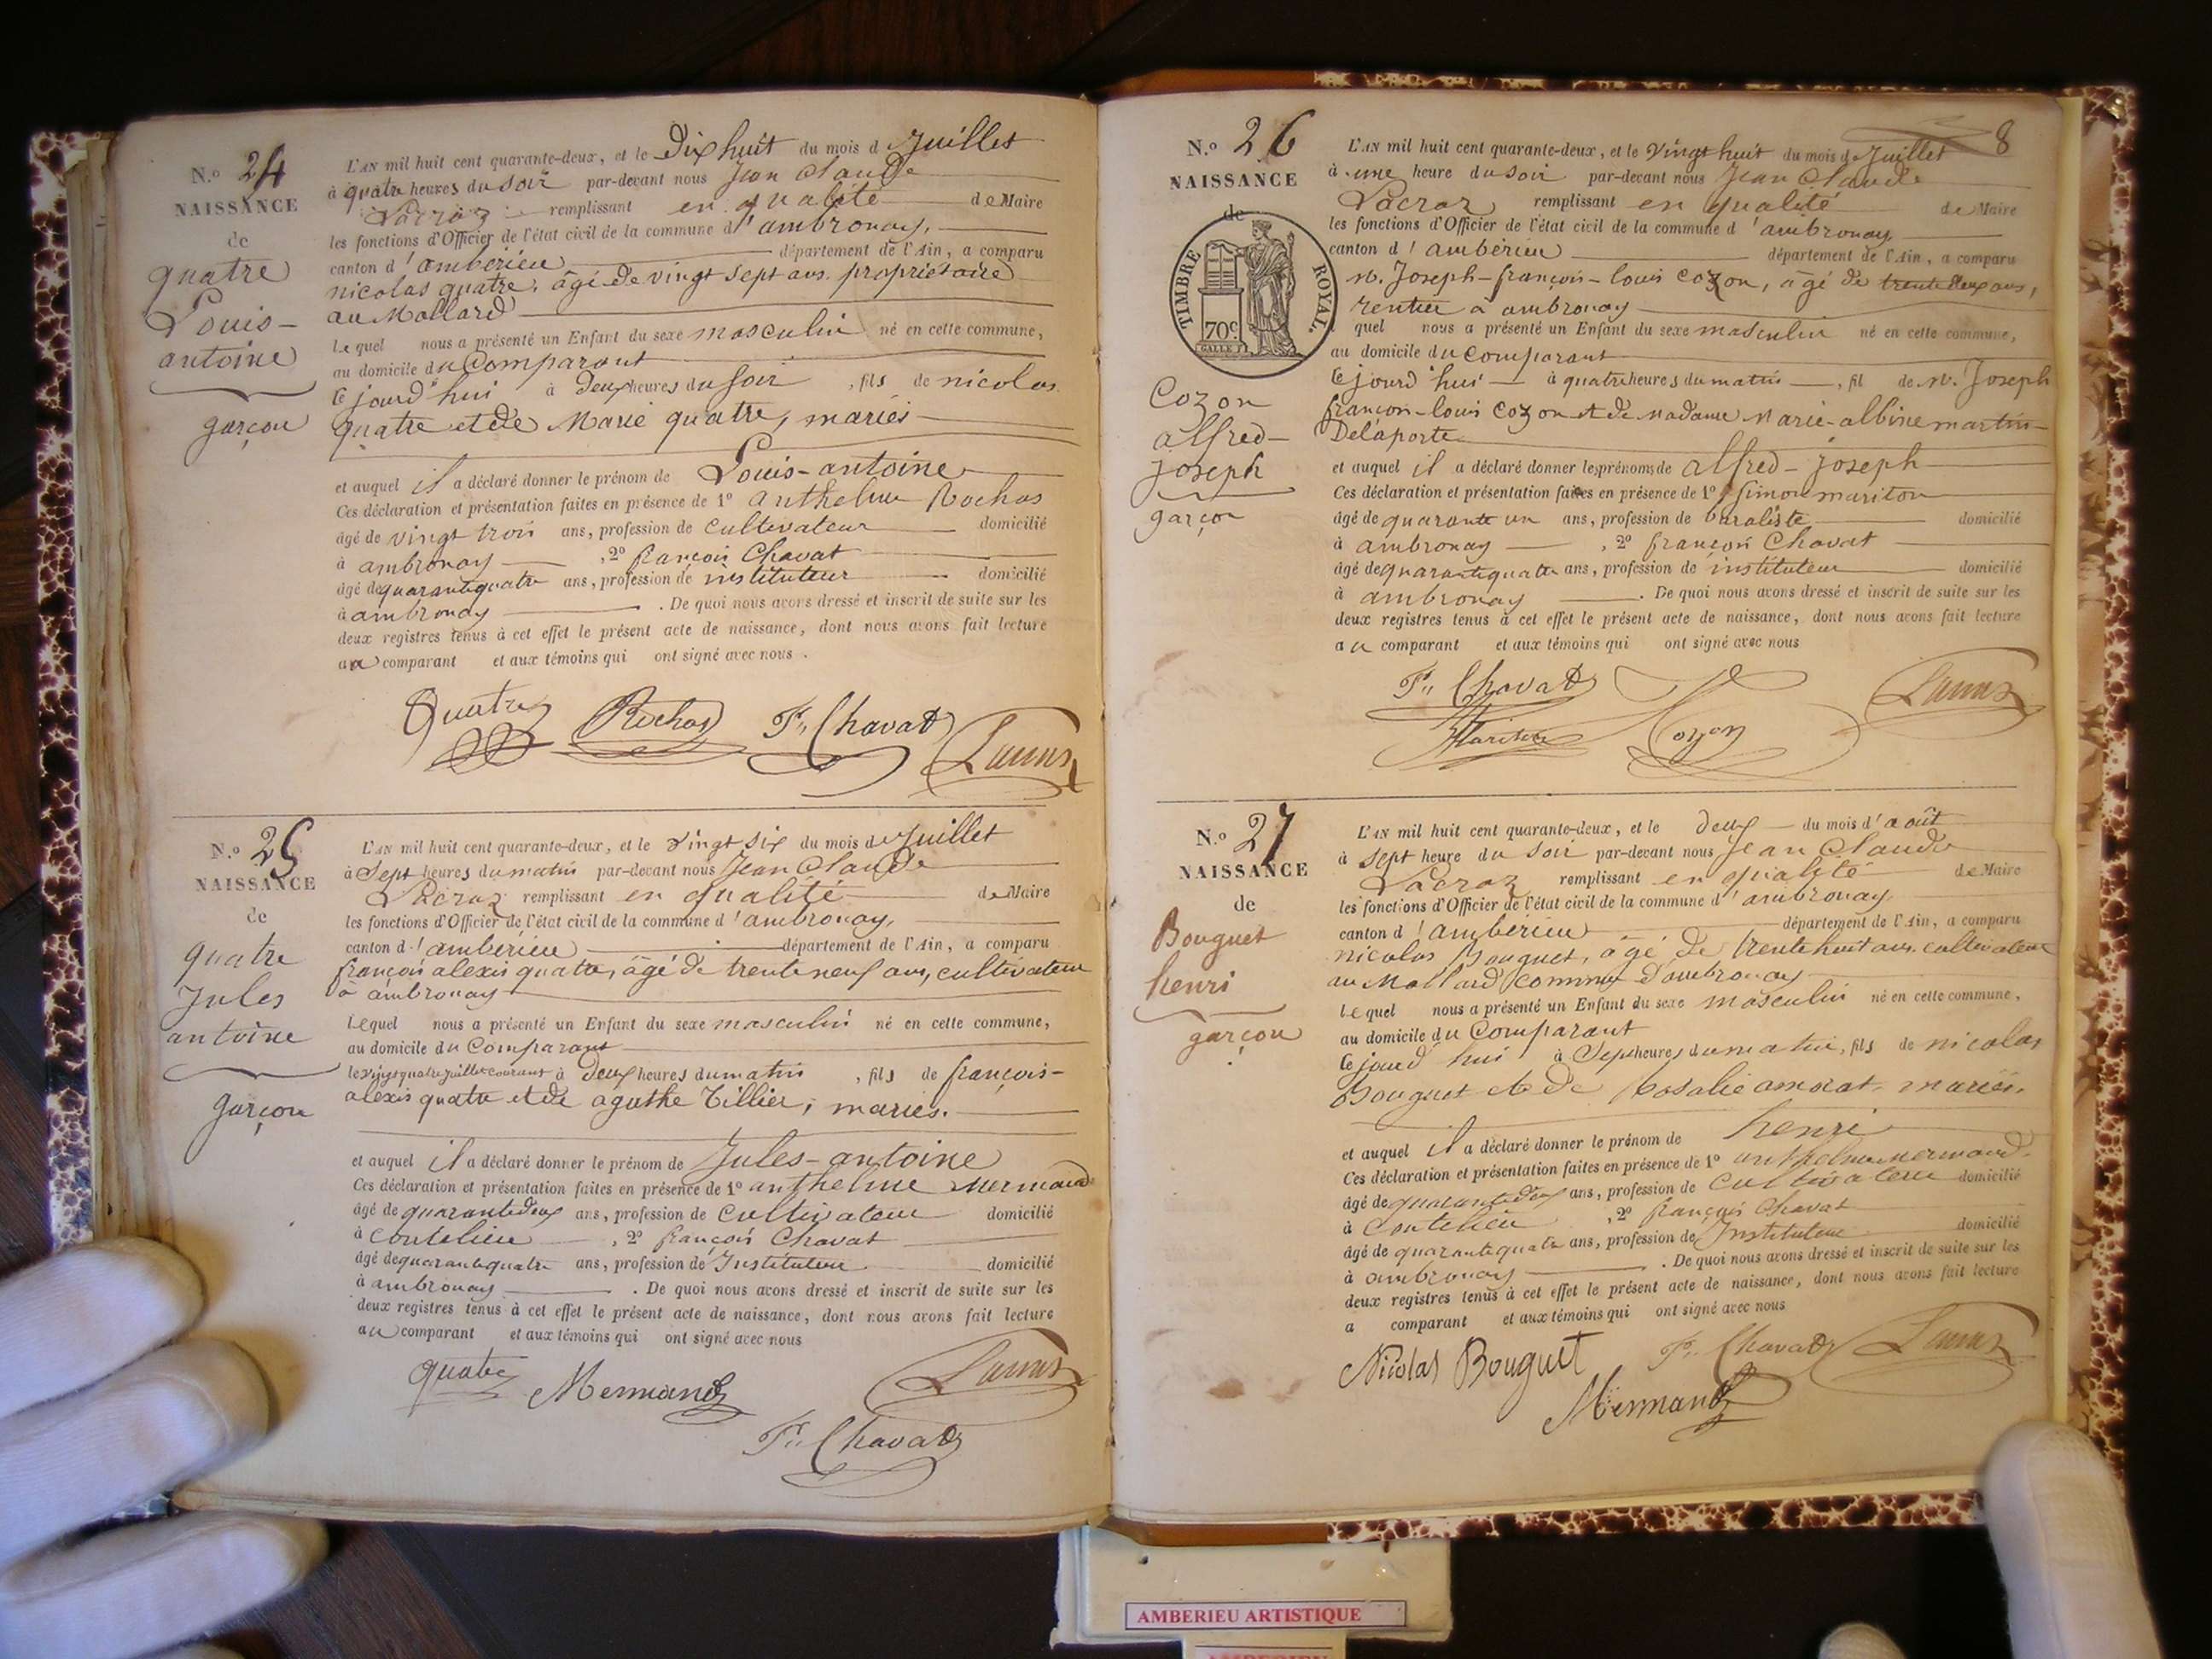 N.º 24
NAISSANCE
de
quatre
Louis-
antoine
garçon
L'AN mil huit cent quarante-deux, et le Dix huit du mois d Juillet
à quatre heures du soir par-devant nous Jean Claude
remplissant en qualité de Maire
les fonctions d'Officier de l'état civil de la commune d'ambronay,
canton d'ambérieu département de l'Ain, a comparu
nicolas quatre, âgé de vingt sept ans, propriétaire
au Mollard
lequel nous a présenté un Enfant du sexe masculin né en cette commune,
au domicile du Comparant
cejourd'hui à deux heures du soir, fils de nicolas
quatre et de Marie quatre, mariés
et auquel il a déclaré donner le prénom de Louis-antoine
Ces déclaration et présentation faites en présence de 1º anthelme Rochas
âgé de vingt trois ans, profession de cultivateur domicilié
à ambronay, 2º françois Chavat
âgé de quarante quatre ans, profession de instituteur domicilié
à ambronay. De quoi nous avons dressé et inscrit de suite sur les
deux registres tenus à cet effet le présent acte de naissance, dont nous avons fait lecture
au comparant et aux témoins qui ont signé avec nous.
Quatre Rochas F. Chavat
N.º 25
NAISSANCE
de
quatre
Jules
antoine
garçon
L'AN mil huit cent quarante-deux, et le vingt six du mois de Juillet
à Sept heures du matin par-devant nous Jean Claude
remplissant en qualité de Maire
les fonctions d'Officier de l'état civil de la commune d'ambronay,
canton d'ambérieu département de l'Ain, a comparu
françois alexis quatre, âgé de trente neuf ans, cultivateur
à ambronay
lequel nous a présenté un Enfant du sexe masculin né en cette commune,
au domicile du Comparant
le vingt quatre juillet courant à deux heures du matin, fils de françois-
alexis quatre et de agathe Tillier, mariés.
et auquel il a déclaré donner le prénom de Jules-antoine
Ces déclaration et présentation faites en présence de 1º anthelme Mermand
âgé de quarante deux ans, profession de Cultivateur domicilié
à Coutelieu, 2º françois Chavat
âgé de quarante quatre ans, profession de Instituteur domicilié
à ambronay. De quoi nous avons dressé et inscrit de suite sur les
deux registres tenus à cet effet le présent acte de naissance, dont nous avons fait lecture
au comparant et aux témoins qui ont signé avec nous
quatre Mermand
F. Chavat
8
N.º 26
NAISSANCE
de
TIMBRE ROYAL.
70c
Cozon
alfred-
joseph
garçon
L'AN mil huit cent quarante-deux, et le vingt huit du mois de Juillet
à une heure du soir par-devant nous Jean Claude
remplissant en qualité de Maire
les fonctions d'Officier de l'état civil de la commune d'ambronay
canton d'ambérieu département de l'Ain, a comparu
M. Joseph-françois-louis Cozon, âgé de trente deux ans,
rentier à ambronay
quel nous a présenté un Enfant du sexe masculin né en cette commune,
au domicile du Comparant
cejourd'hui à quatre heures du matin, fil de M. Joseph
françois-louis Cozon et de Madame Marie-albine martin-
Delaporte
et auquel il a déclaré donner les prénoms de alfred-joseph
Ces déclaration et présentation faites en présence de 1º Simon mariton
âgé de quarante un ans, profession de buraliste domicilié
à ambronay, 2º françois Chavat
âgé de quarante quatre ans, profession de instituteur domicilié
à ambronay. De quoi nous avons dressé et inscrit de suite sur les
deux registres tenus à cet effet le présent acte de naissance, dont nous avons fait lecture
au comparant et aux témoins qui ont signé avec nous
F. Chavat
Mariton Cozon
N.º 27
NAISSANCE
de
Bouguet
henri
garçon
L'AN mil huit cent quarante-deux, et le deux du mois d'août
à sept heure du soir par-devant nous Jean Claude
remplissant en qualité de Maire
les fonctions d'Officier de l'état civil de la commune d'ambronay
canton d'ambérieu département de l'Ain, a comparu
nicolas Bouguet, âgé de trente huit ans, cultivateur
au Mollard commune d'ambronay
lequel nous a présenté un Enfant du sexe masculin né en cette commune,
au domicile du Comparant
cejourd'hui à Sept heures du matin, fils de nicolas
Bouguet et de Rosalie mariés.
et auquel il a déclaré donner le prénom de henri
Ces déclaration et présentation faites en présence de 1º anthelme mermand
âgé de quarante deux ans, profession de Cultivateur domicilié
à Coutelieu, 2º françois Chavat
âgé de quarante quatre ans, profession de Instituteur domicilié
à ambronay. De quoi nous avons dressé et inscrit de suite sur les
deux registres tenus à cet effet le présent acte de naissance, dont nous avons fait lecture
a comparant et aux témoins qui ont signé avec nous
Nicolas Bouguet F. Chavat
Mermand
AMBERIEU ARTISTIQUE